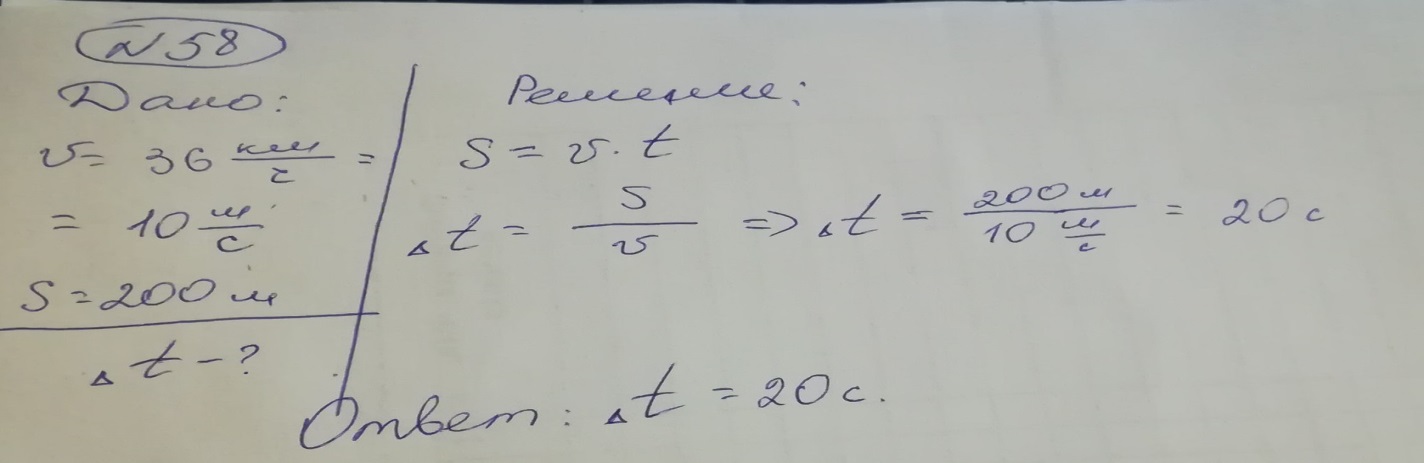 №58
Дано:
v = 36 км/ч =
= 10 м/с
S = 200 м
Δt - ?
Решение:
S = v · t
Δt = S/v => Δt = 200 м / 10 м/с = 20 с
Ответ: Δt = 20 с.